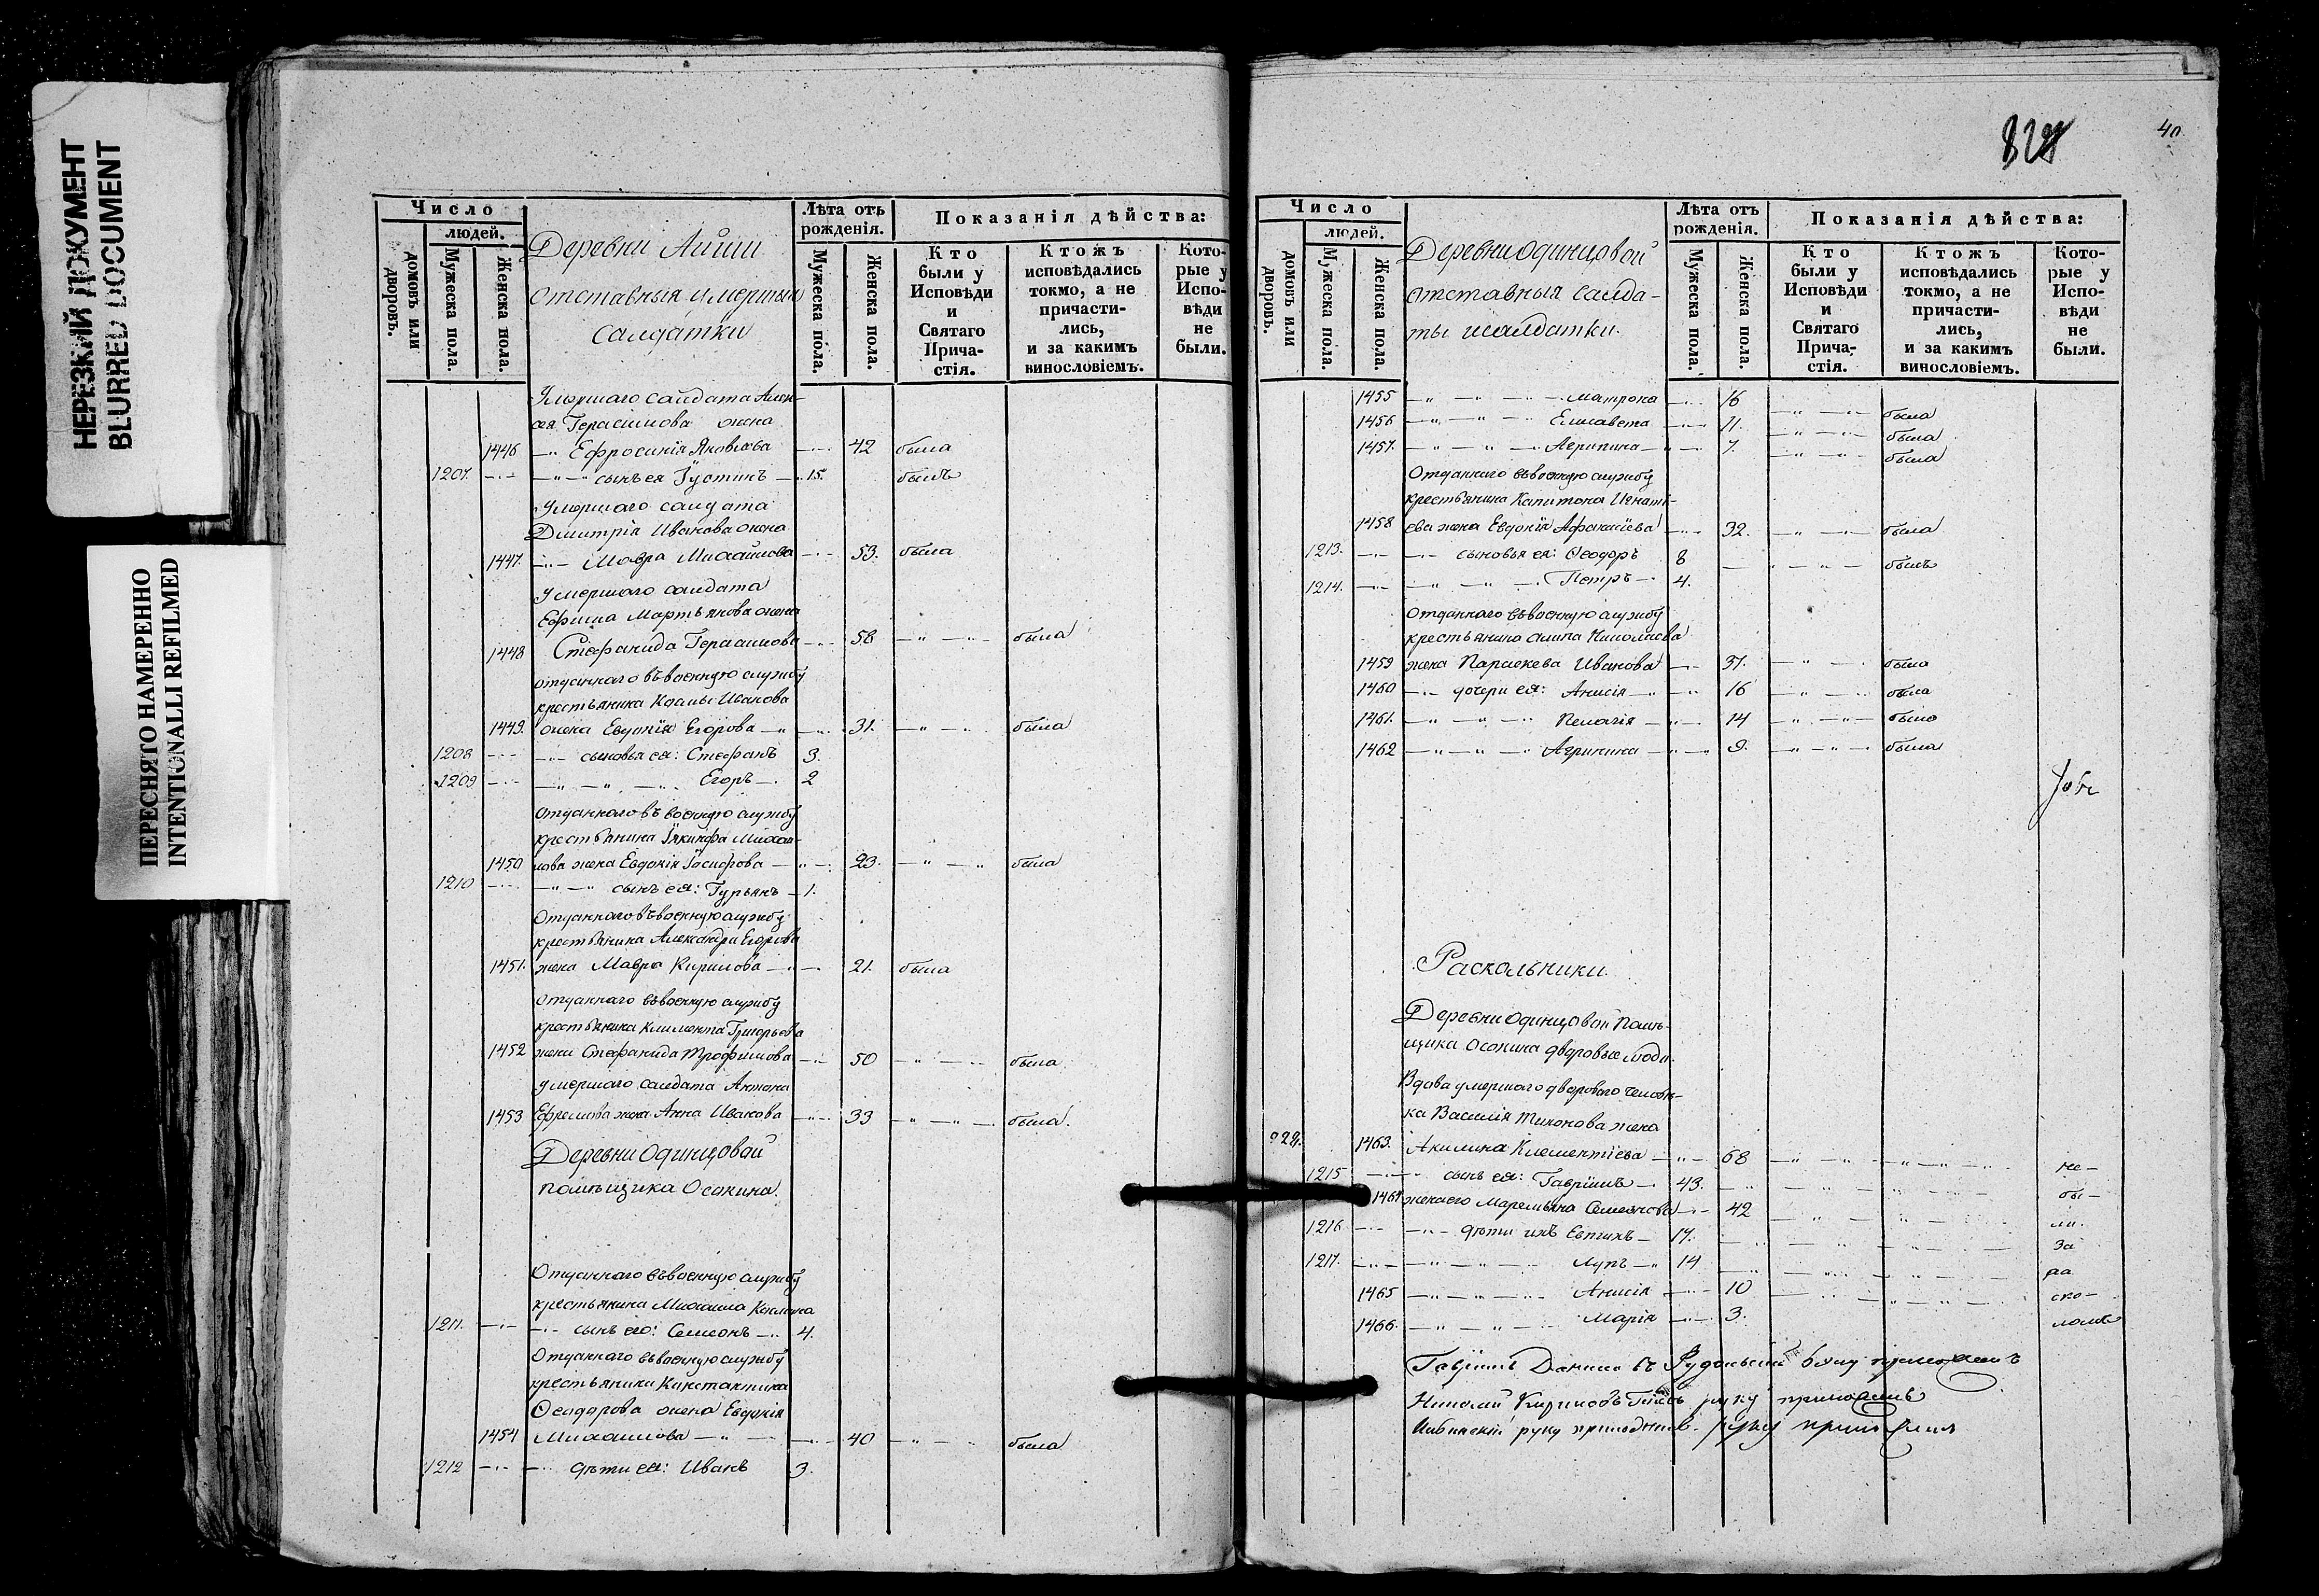 НЕРЕЗКИЙ ДОКУМЕНТ
BLURRED DOCUMENT
ПЕРЕСНЯТО НАМЕРЕННО
INTENTIONALLI REFILMED
Число
людей.
домовъ или дворовъ.
Мужеска пола.
Женска пола.
Деревни Айши
отставныя умершыя
салдатки
Лѣта отъ рожденія.
Мужеска пола.
Женска пола.
Показанія дѣйства:
Кто были у Исповѣди и Святаго Прича-стія.
Ктожъ исповѣдались токмо, а не причасти-лись, и за какимъ винословіемъ.
Кото-рые у Испо-вѣди не были.
Умершаго салдата Алек-
сея Герасимова жена
1446 Ефросинія Яковлева 42 была
1207. сынъ ея Іустинъ 15. былъ
Умершаго салдата
Димитрія Иванова жена
1447. Мавра Михайлова 53. была
умершаго салдата
Ефима Мартьянова жена
1448 Стефанида Герасимова 58 была
отданнаго въ военную службу
крестьянина Космы Иванова
1449. жена Евдокія Егорова 31. была
1208 сыновья ея: Стефанъ 3.
1209 Егоръ 2
Отданнаго въ военную службу
крестьянина Іакинфа Михаи-
1450 лова жена Евдокія Іосифова 23. была
1210 сынъ ея: Гурьянъ 1.
Отданнаго въ военную службу
крестьянина Александра Егорова
1451. жена Мавра Кирилова 21. была
Отданнаго въ военную службу
крестьянина Климента Григорьева
1452 жена Стефанида Трофимова 50 была
умершаго салдата Антона
1453 Ефремова жена Анна Иванова 33 была.
Деревни Одинцовой
помѣщика Осокина.
Отданнаго въ военную службу
крестьянина Михаила
1211. сынъ его: Семеонъ 4.
Отданнаго въ военную службу
крестьянина Константина
Ѳеодорова жена Евдокія
1454 Михаилова 40 была
1212 дѣти ея: Иванъ 3.
40
Число
людей.
домовъ или дворовъ.
Мужеска пола.
Женска пола.
Деревни Одинцовой
отставныя салда-
ты и салдатки.
Лѣта отъ рожденія.
Мужеска пола.
Женска пола.
Показанія дѣйства:
Кто были у Исповѣди и Святаго Прича-стія.
Ктожъ исповѣдались токмо, а не причасти-лись, и за какимъ винословіемъ.
Кото-рые у Испо-вѣди не были.
1455 Матрона 16 была
1456 Елисавета 11. была
1457. Агрипина 7. была
Отданнаго въ военную службу
крестьянина Капитона Игнать-
1458 ева жена Евдокія Афанасіева 32. была
1213. сыновья ея: Ѳеодоръ 8 былъ
1214. Петръ 4.
Отданнаго въ военную службу
крестьянина Николаева
1459 жена Параскева Иванова 37. была
1460 дочери ея: Анисія 16 была
1461. Пелагія 14 была
1462 Агрипина 9. была
Раскольники.
Деревни Одинцовой помѣ-
щика Осокина дворовые люди.
Вдова умершаго двороваго человѣ-
ка Василія Тихонова жена
1463. Акилина Клементіева 68 не-
1215 сынъ ея: Гавріилъ 43. бы-
1464 жена его Маремьяна Семеонова 42 ли.
1216 дѣти ихъ Евтихъ 17. За
1217. Лупъ 14 ра
1465 Анисія 10 ско-
1466. Марія 3. ломъ
руку приложилъ
руку приложилъ